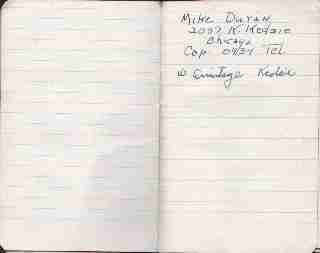 Mike Duran
2037 N. Kedzie
Chicago
Cap 0424 Tel
W Armitage Kedzie